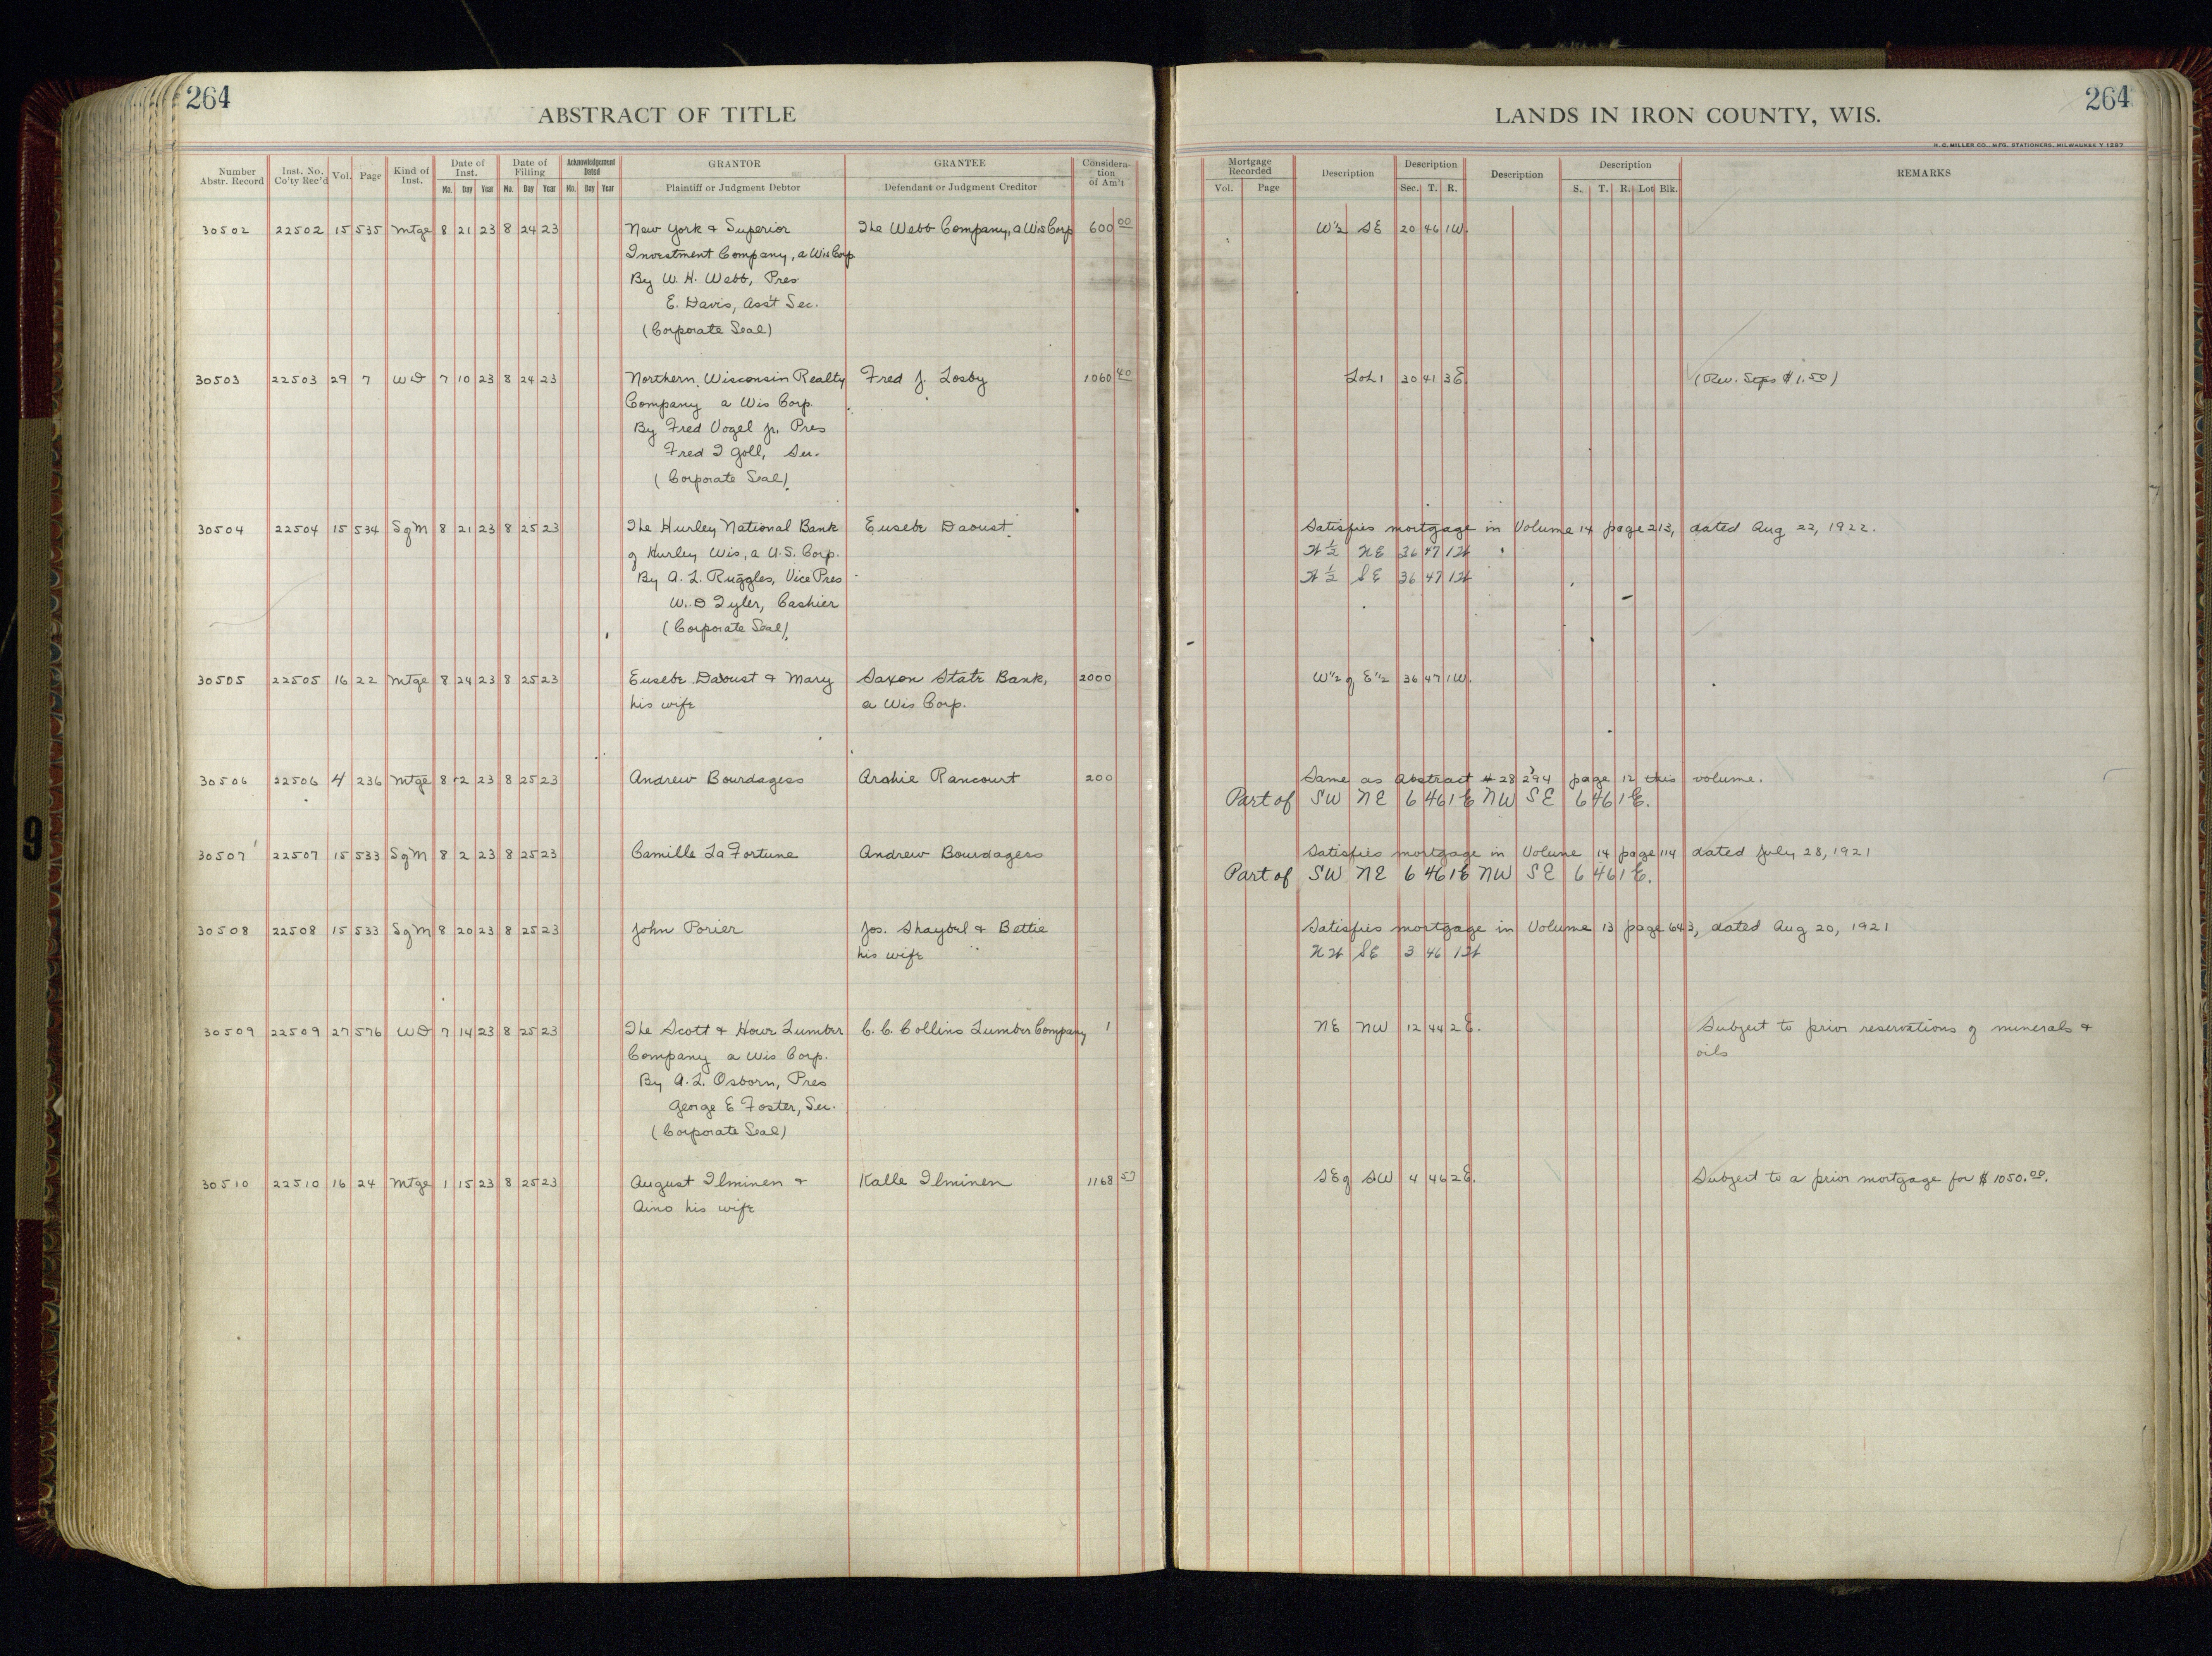 264
ABSTRACT OF TITLE
Number Abstr. Record Inst. No. Co'ty Rec'd Vol. Page Kind of Inst. Date of Inst. Mo. Day Year Date of Filling Mo. Day Year Acknowledgement Dated Mo. Day Year GRANTOR Plaintiff or Judgment Debtor GRANTEE Defendant or Judgment Creditor Considera-tion of Am't
30502 22502 15 535 Mtge 8 21 23 8 24 23 New York & Superior The Webb Company, a Wis Corp 600 00
Investment Company, a Wis Corp
By W. H. Webb, Pres
E. Davis, Ass't Sec.
(Corporate Seal)
30503 22503 29 7 WD 7 10 23 8 24 23 Northern Wisconsin Realty Fred J. Losby 1060 40
Company a Wis Corp.
By Fred Vogel Jr. Pres
Fred T Goll, Sec.
(Corporate Seal)
30504 22504 15 534 SgM 8 21 23 8 25 23 The Hurley National Bank Eusebe Daoust
of Hurley Wis, a U.S. Corp.
By A. L. Ruggles, Vice Pres
W. D Tyler, Cashier
(Corporate Seal)
30505 22505 16 22 Mtge 8 24 23 8 25 23 Eusebe Daoust & Mary Saxon State Bank, 2000
his wife a Wis Corp.
30506 22506 4 236 Mtge 8 2 23 8 25 23 Andrew Bourdagess Archie Rancourt 200
30507 22507 15 533 SgM 8 2 23 8 25 23 Camille LaFortune Andrew Bourdagess
30508 22508 15 533 SgM 8 20 23 8 25 23 John Porier Jos. Shaybel & Bettie
his wife
30509 22509 27 576 WD 7 14 23 8 25 23 The Scott & Howe Lumber C. C. Collins Lumber Company 1
Company a Wis Corp.
By A. L. Osborn, Pres
George E Foster, Sec.
(Corporate Seal)
30510 22510 16 24 Mtge 1 15 23 8 25 23 August Ilminen & Kalle Ilminen 1168 50
Aino his wife
264
LANDS IN IRON COUNTY, WIS.
H. C. MILLER CO., MFG. STATIONERS, MILWAUKEE Y 1297
Mortgage Recorded Vol. Page Description Description Sec. T. R. Description Description S. T. R. Lot Blk. REMARKS
W½ SE 20 46 1W.
Lot 1 30 41 3E (Rev. Stps $1.50)
Satisfies mortgage in Volume 14 page 213, dated Aug 22, 1922.
W ½ NE 36 47 1W
W ½ SE 36 47 1W
W½ of E½ 36 47 1W.
Same as Abstract # 28294 page 12 this volume.
Part of SW NE 6 46 1E NW SE 6 46 1E.
Satisfies mortgage in Volume 14 page 114 dated July 28, 1921
Part of SW NE 6 46 1E NW SE 6 46 1E.
Satisfies mortgage in Volume 13 page 643, dated Aug 20, 1921
NW SE 3 46 1W
NE NW 12 44 2E. Subject to prior reservations of minerals &
oils
SE of SW 4 46 2E. Subject to a prior mortgage for $1050.00.
9